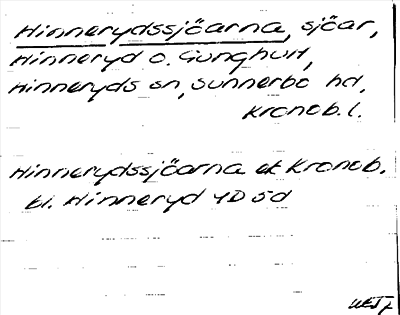 Hinnerydssjöarna, sjöar,
Hinneryd o. Gunghult,
Hinneryds sn, Sunnerbo hd,
Kronob. l.
Hinnerydssjöarna ek Kronob.
bl. Hinneryd 4D 5d